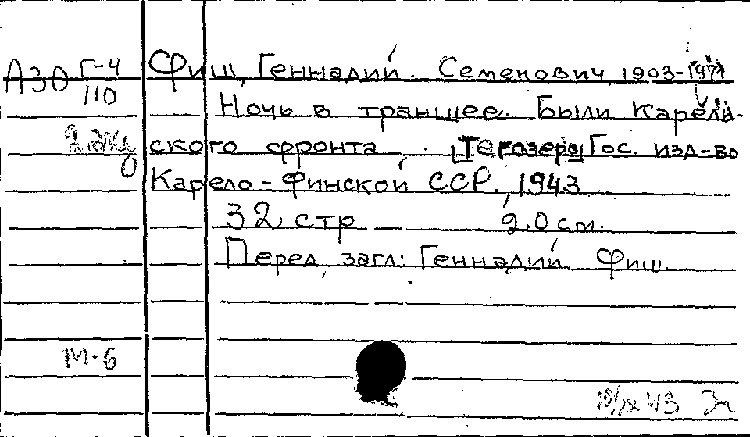 А30 Г-4/110
Фиш, Геннадий Семенович, 1903-1971
Ночь в траншее. Были Карель-
2 экз
ского фронта. [Тегозеро] Гос. изд-во
Карело-Финской ССР, 1943
32 стр 20 см.
Перед загл: Геннадий Фиш.
М-б